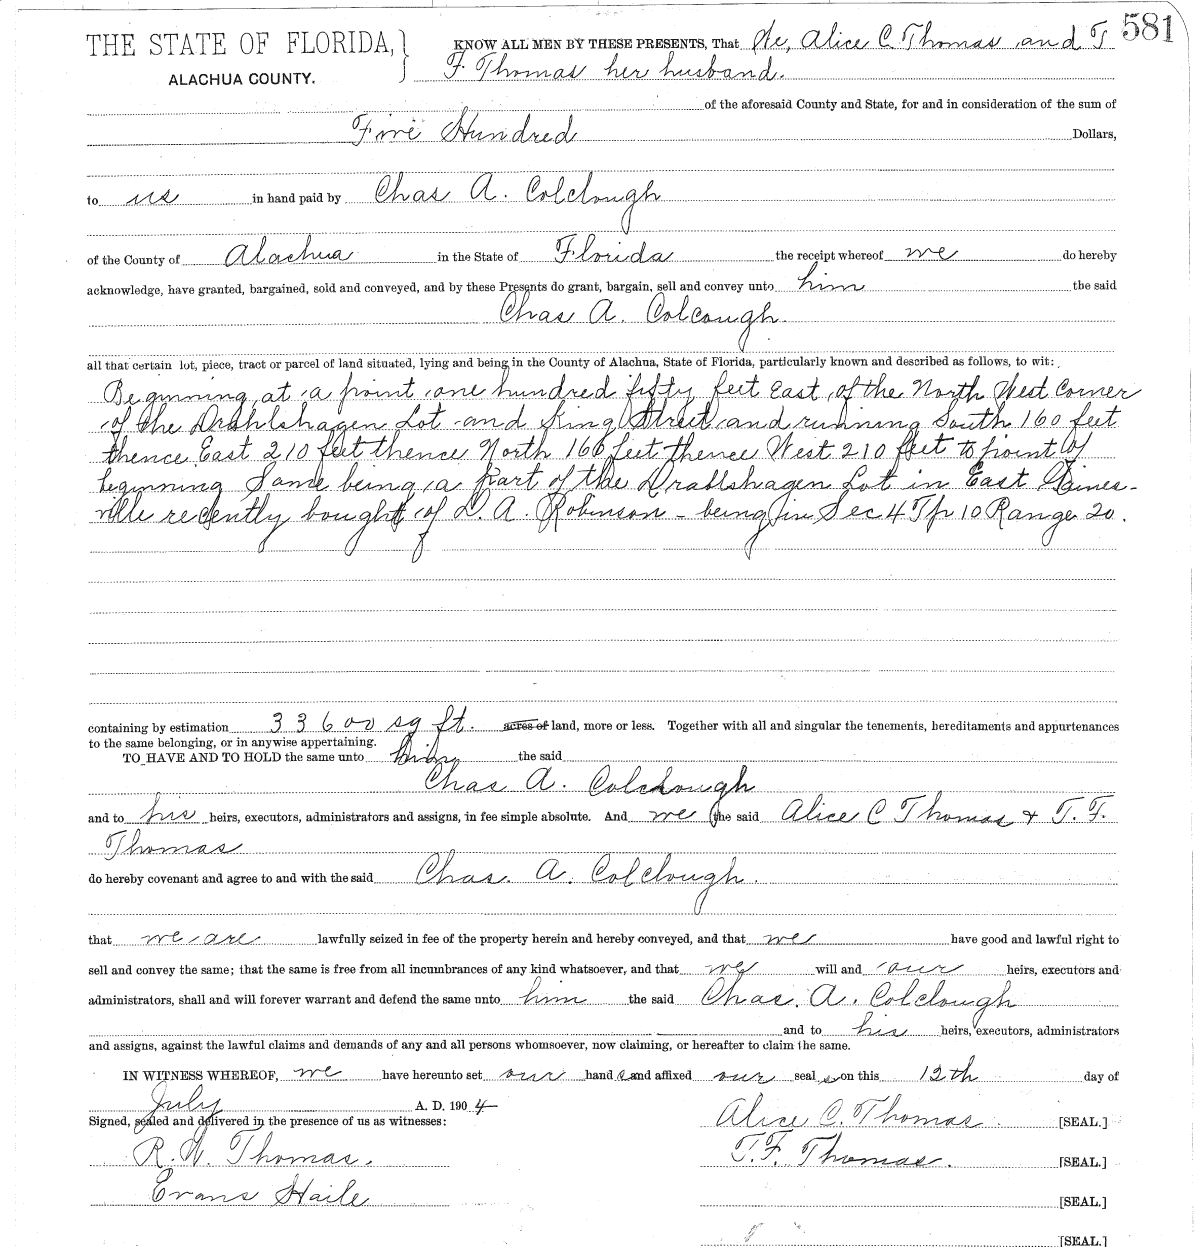 581
THE STATE OF FLORIDA, } KNOW ALL MEN BY THESE PRESENTS, That We, Alice C. Thomas and T
ALACHUA COUNTY. F. Thomas her husband.
of the aforesaid County and State, for and in consideration of the sum of
Five Hundred Dollars,
to us in hand paid by Chas A. Colclough
of the County of Alachua in the State of Florida the receipt whereof we do hereby
acknowledge, have granted, bargained, sold and conveyed, and by these Presents do grant, bargain, sell and convey unto him the said
Chas A. Colcough.
all that certain lot, piece, tract or parcel of land situated, lying and being in the County of Alachua, State of Florida, particularly known and described as follows, to wit:
Beginning at a point one hundred fifty feet East of the North West Corner
of the Drahlshagen Lot and King Street and running South 160 feet
thence East 210 feet thence North 160 feet thence West 210 feet to point of
beginning Same being a part of the Drablshagen Lot in East Gaines-
ville recently bought of L. A. Robinson - being in Sec 4 Tp 10 Range 20.
containing by estimation 33600 sq ft. acres of land, more or less. Together with all and singular the tenements, hereditaments and appurtenances
to the same belonging, or in anywise appertaining.
TO HAVE AND TO HOLD the same unto him the said
Chas A. Colclough
and to his heirs, executors, administrators and assigns, in fee simple absolute. And we the said Alice C Thomas & T. F.
Thomas
do hereby covenant and agree to and with the said Chas. A. Colclough.
that we are lawfully seized in fee of the property herein and hereby conveyed, and that we have good and lawful right to
sell and convey the same; that the same is free from all incumbrances of any kind whatsoever, and that we will and our heirs, executors and
administrators, shall and will forever warrant and defend the same unto him the said Chas. A. Colclough
and to his heirs, executors, administrators
and assigns, against the lawful claims and demands of any and all persons whomsoever, now claiming, or hereafter to claim the same.
IN WITNESS WHEREOF, we have hereunto set our hands and affixed our seals on this 12th day of
July A. D. 1904
Signed, sealed and delivered in the presence of us as witnesses: Alice C. Thomas [SEAL.]
R. W. Thomas. T. F. Thomas. [SEAL.]
Evans Haile [SEAL.]
[SEAL.]